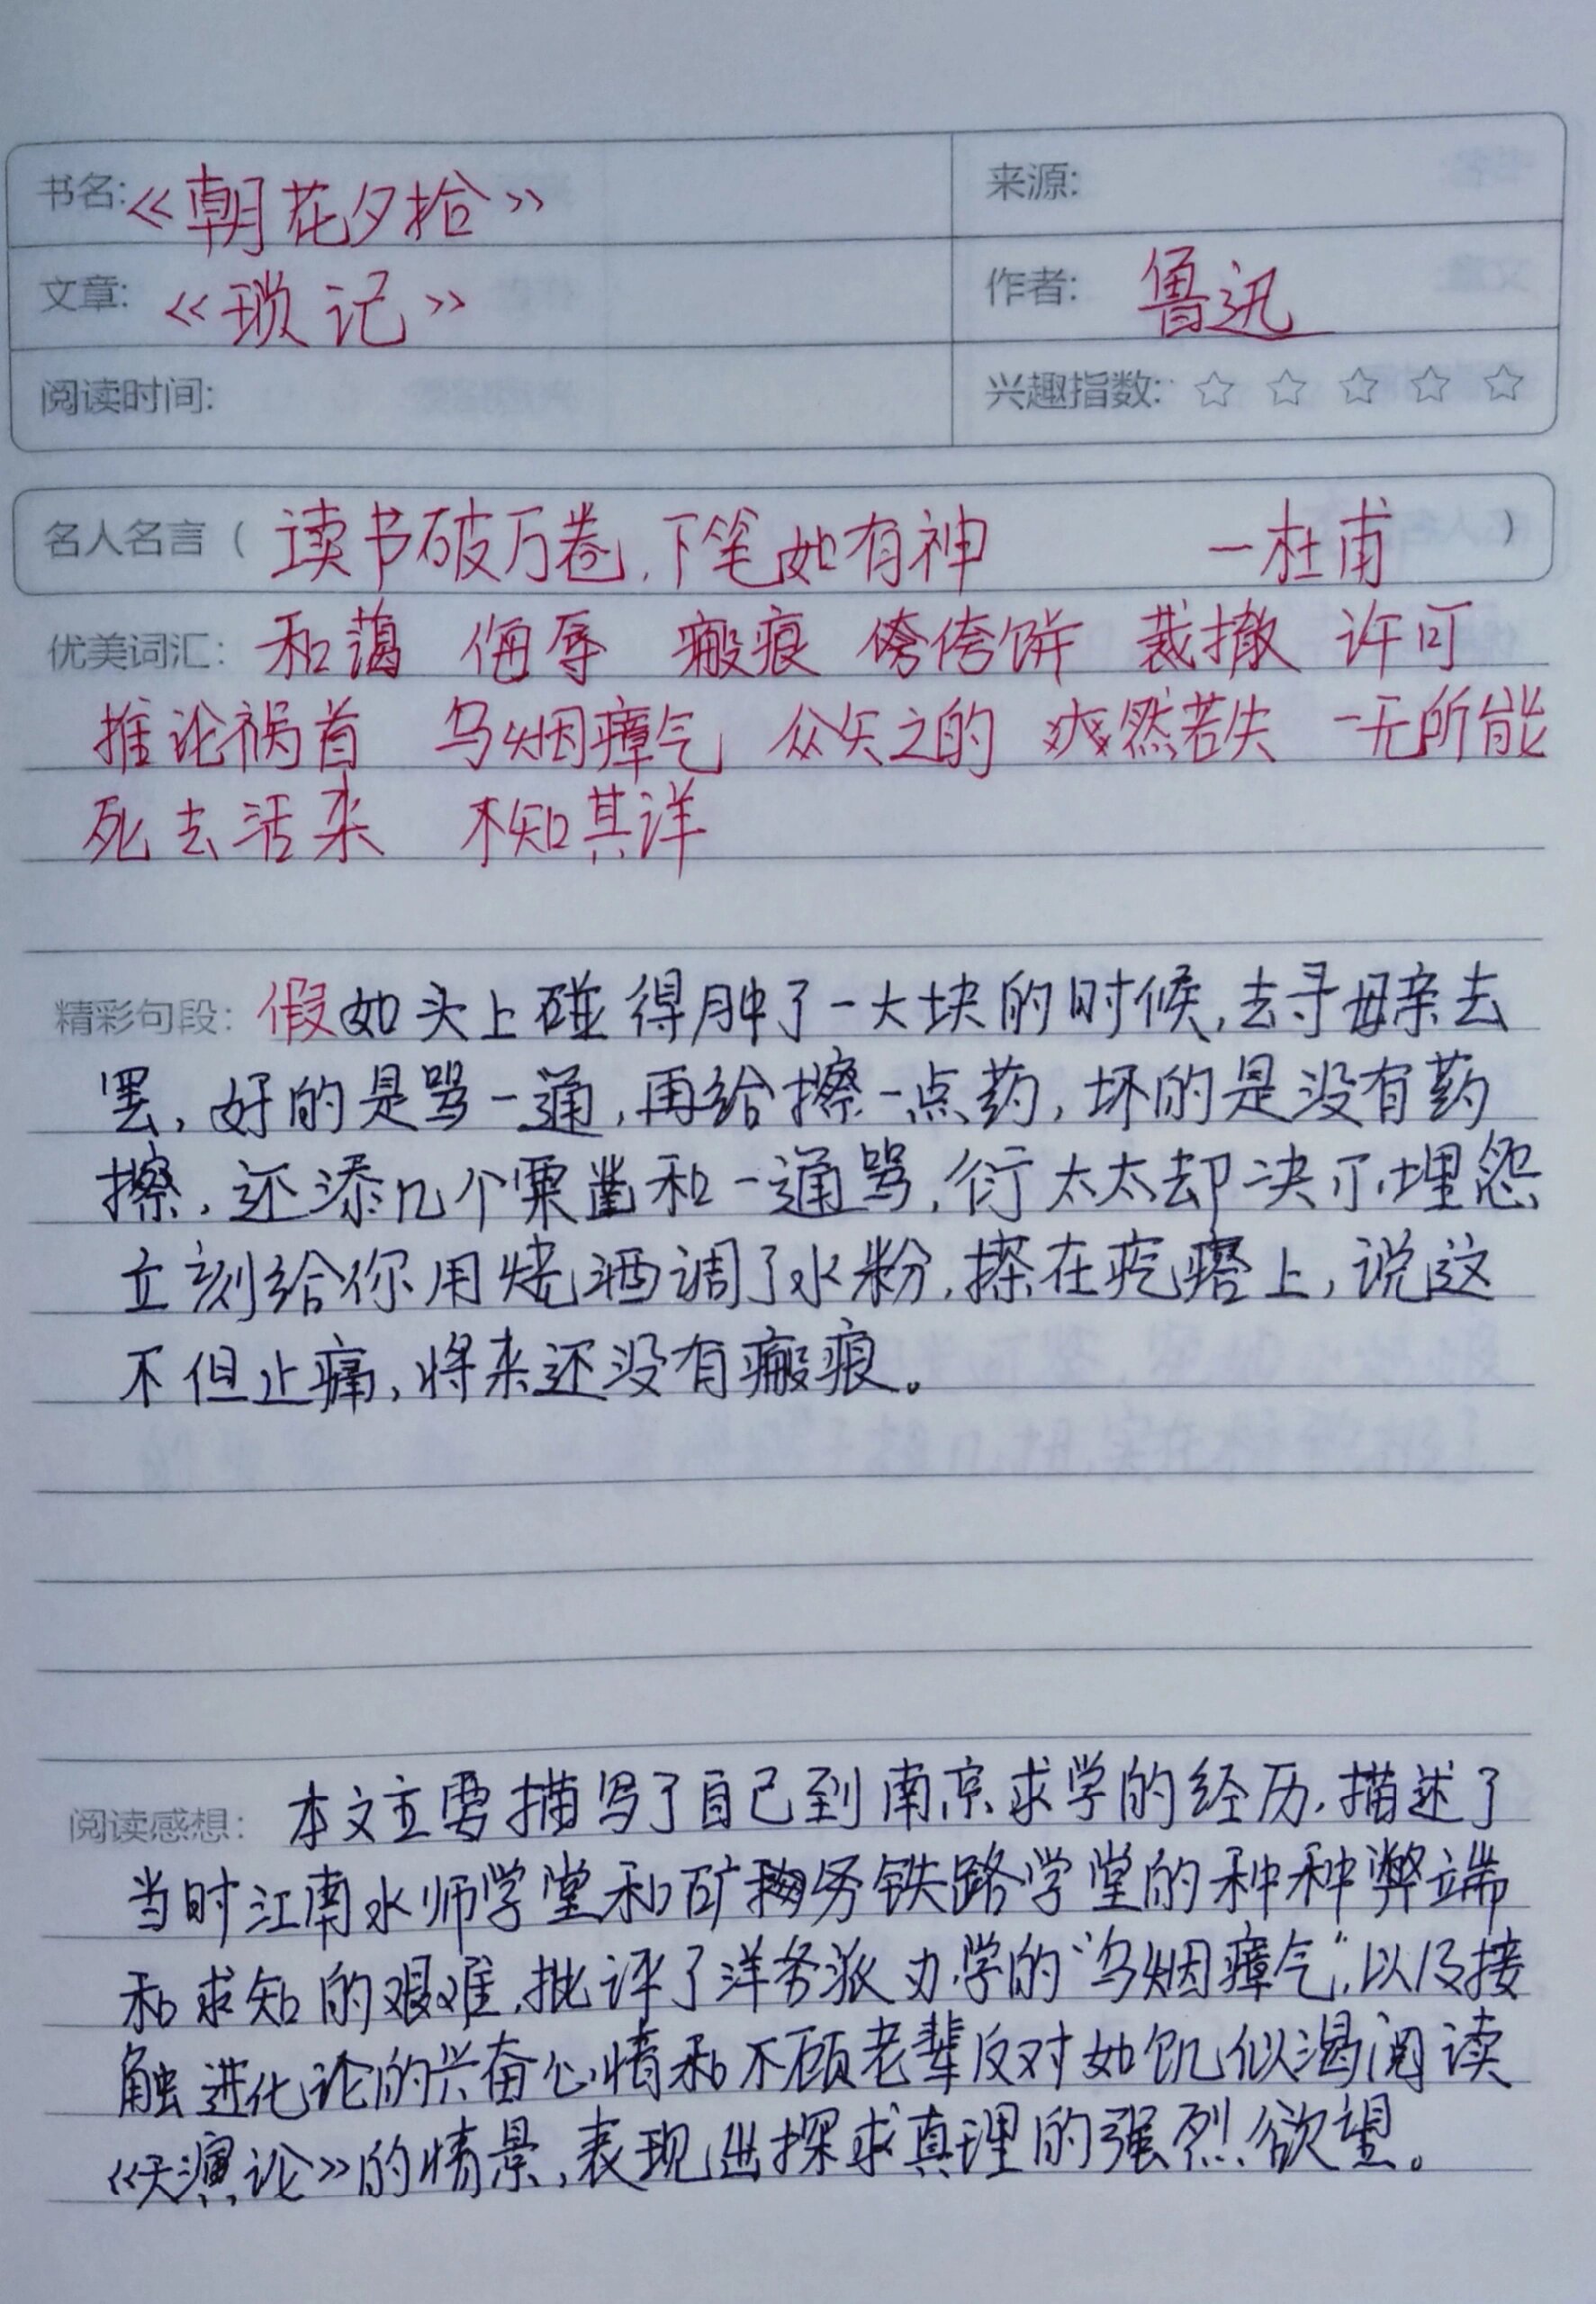 书名:《朝花夕拾》 来源:
文章:《琐记》 作者: 鲁迅
阅读时间: 兴趣指数: ☆ ☆ ☆ ☆ ☆
名人名言(读书破万卷,下笔如有神 一杜甫)
优美词汇: 和蔼 侮辱 瘢痕 侉侉饼 裁撤 许可
推论祸首 乌烟瘴气 众矢之的 爽然若失 一无所能
死去活来 不知其详
精彩句段: 假如头上碰得肿了一大块的时候,去寻母亲去
罢,好的是骂一通,再给擦一点药,坏的是没有药
擦,还添几个栗凿和一通骂,衍太太却决不埋怨
立刻给你用烧酒调了水粉,搽在疙瘩上,说这
不但止痛,将来还没有瘢痕。
阅读感想: 本文主要描写了自己到南京求学的经历,描述了
当时江南水师学堂和矿务铁路学堂的种种弊端
和求知的艰难,批评了洋务派办学的“乌烟瘴气”,以及接
触进化论的兴奋心情和不顾老辈反对如饥似渴阅读
《天演论》的情景,表现出探求真理的强烈欲望。